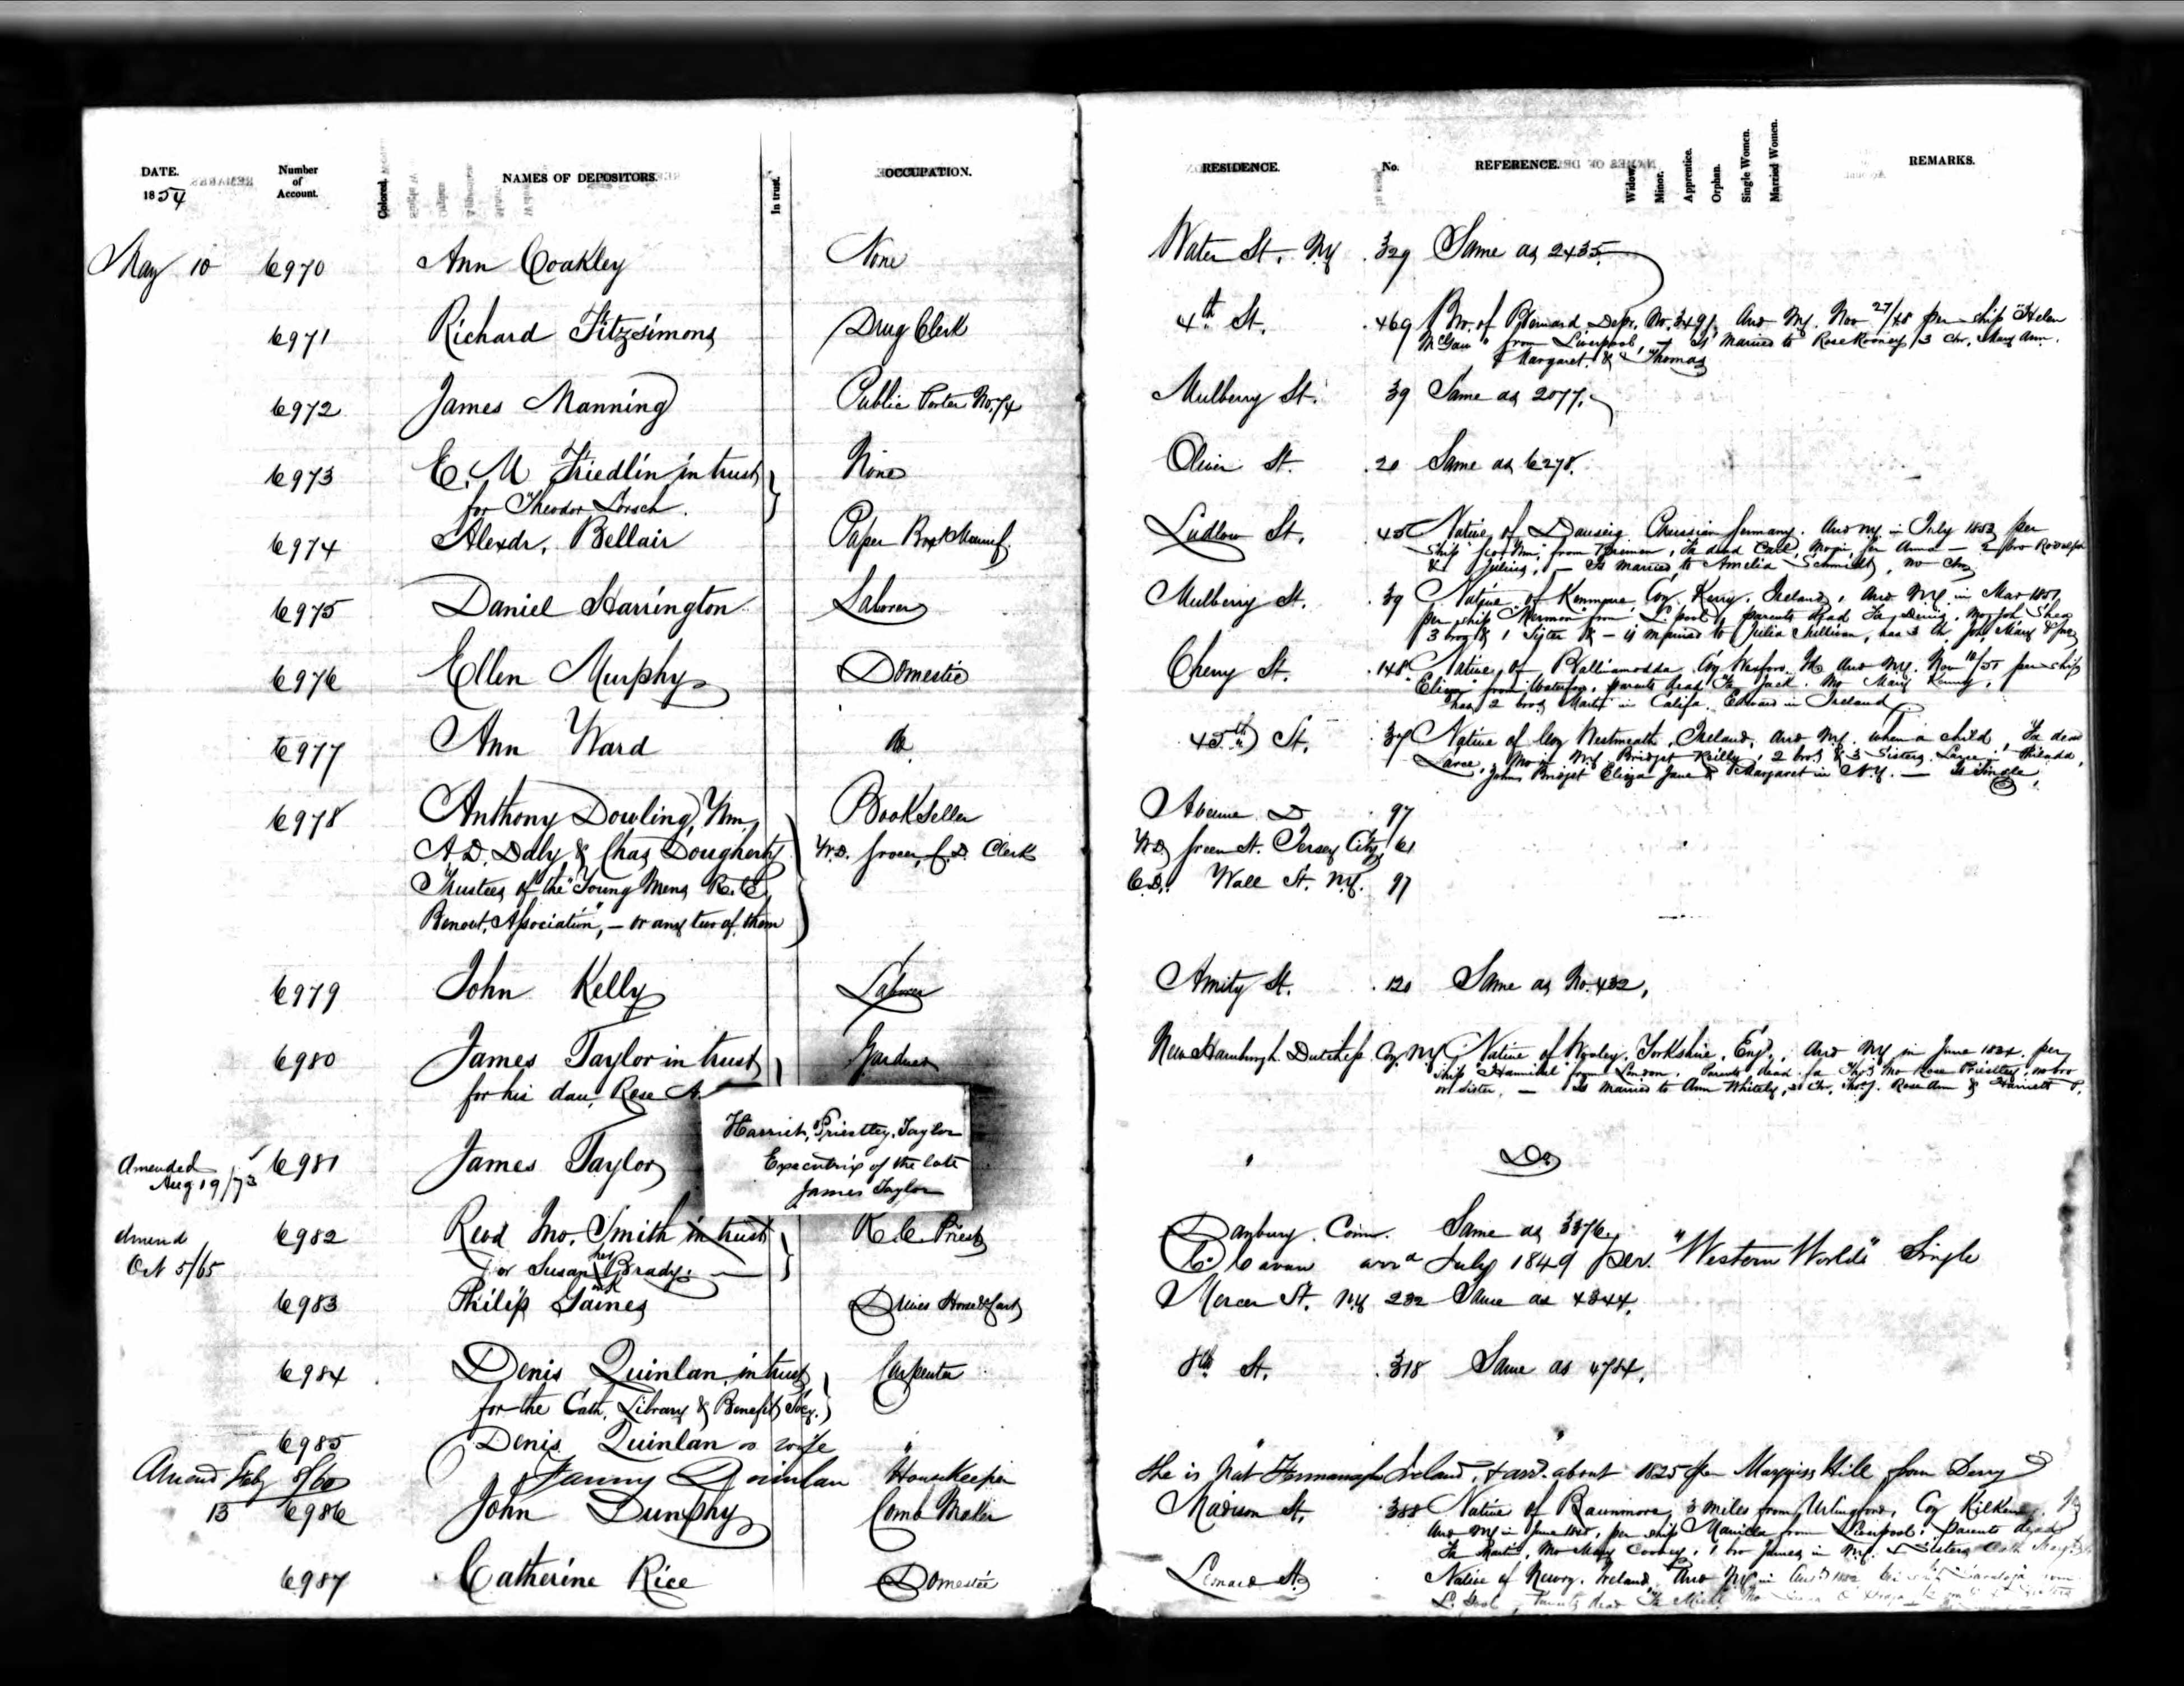 DATE. Number of Account. Colored. NAMES OF DEPOSITORS. In trust. OCCUPATION. RESIDENCE. No. REFERENCE. Widow. Minor. Apprentice. Orphan. Single Women. Married Women. REMARKS.
1854
May 10 6970 Ann Coakley None Water St. N.Y 329 Same as 2435.
6971 Richard Fitzsimons Drug Clerk 4th St. 469 Bro. of Bernard Depr. No. 3491. Arrd N.Y. Nov 27/48 per ship "Helen
McGaw" from Liverpool, Is married to Rose Rooney, 3 chr, Mary Ann.
Margaret. & Thomas
6972 James Manning Public Porter No. 74 Mulberry St. 39 Same as 2077.
6973 E. M Friedlin in trust None Oliver St. 20 Same as 6278.
for Theodor Lorsch.
6974 Alexdr. Bellair Paper Box Manuf. Ludlow St. 45 Native of Danzig Prussian Germany. Arrd N.Y. in July 1853 per
ship from Bremen, Fa dead Carl, Mo in Ger Anna — 2 bro Rudolph
& Julius, — Is married to Amelia Schmidt, no chr
6975 Daniel Harrington Laborer Mulberry St. 39 Native of Kenmare Coy. Kerry. Ireland, Arrd N.Y. in Mar 1851,
per ship "Mermion" from L.pool, parents dead Fa Denis, Mo Joh. Shea
3 bros & 1 Sister — is married to Julia Sullivan, has 3 ch, Joh, Mary &
6976 Ellen Murphy Domestic Cherry St. 148 Native of Ballinmodda, Coy Wexford. Id. Arrd N.Y. Nov 18/50 per ship
"Eliza" from Waterford, parents dead Fa Jack. Mo Mary Kenny,
has 2 bros Martin in Califa. Edward in Ireland
6977 Ann Ward do 45th St. 37 Native of Coy Westmeath, Ireland, Arrd N.Y. when a child, Fa dead
Lauce, Mo in N.Y. Bridget Reilly, 2 bros & 3 Sisters. Lauce in Philada,
John, Bridget Eliza Jane & Margaret in N.Y. — Is Single,
6978 Anthony Dowling, Wm. Bookseller Avenue D 97
A. D. Daly & Chas Dougherty W.D. Grocer, C.D. Clerk W.D. Green St. Jersey City 61
Trustees of the "Young Mens R. C. C.D. Wall St. N.Y. 97
Benevt. Association", — or any two of them
6979 John Kelly Laborer Amity St. 120 Same as No. 432,
6980 James Taylor in trust Gardner New Hamburgh. Dutchess Coy. N.Y. Native of Wooley. Yorkshire. Engd., Arrd N.Y in June 1824. per
for his dau. Rose A. ship "Hannibal" from London. Parents dead fa Thos Mo Rose Priestley, no bro
or sister. — Is married to Ann Whitely, 3 Chr. Thos J. Rose Ann & Harriett P.
Harriet, Priestley, Taylor
Executrix of the late
James Taylor
Amended Aug 19/73 6981 James Taylor " Do
Amend Oct 5/65 6982 Revd Jno. Smith in trust R. C. Priest Danbury. Conn. Same as 3376.
or Susan Brady. C. Cavan arrd July 1849 per. "Western World" Single
6983 Philip Gaines Drives Horse & Cart Mercer St. N.Y 232 Same as 4344.
6984 Denis Quinlan, in trust Carpenter 8th St. 318 Same as 4784.
for the Cath. Library & Benefit Socy.
6985 Denis Quinlan or wife " " "
Amend Feby 8/60 Fanny Quinlan Housekeeper She is Nat Fermanagh Ireland, & arrd. about 1825 per Marquiss Hill from Derry
13 6986 John Dunphy Comb Maker Madison St. 388 Native of Rawnmore, 3 miles from Urlingford, Coy Kilkenny.
Arrd N.Y in June per ship Manilla from Liverpool. Parents dead
Fa Martin, Mo Mary Cooney, 1 bro James in N.Y. Sisters
6987 Catherine Rice Domestic Leonard St. Native of Newry. Ireland. Arrd N.Y. in
L.pool, Parents dead Fa Michl Mo